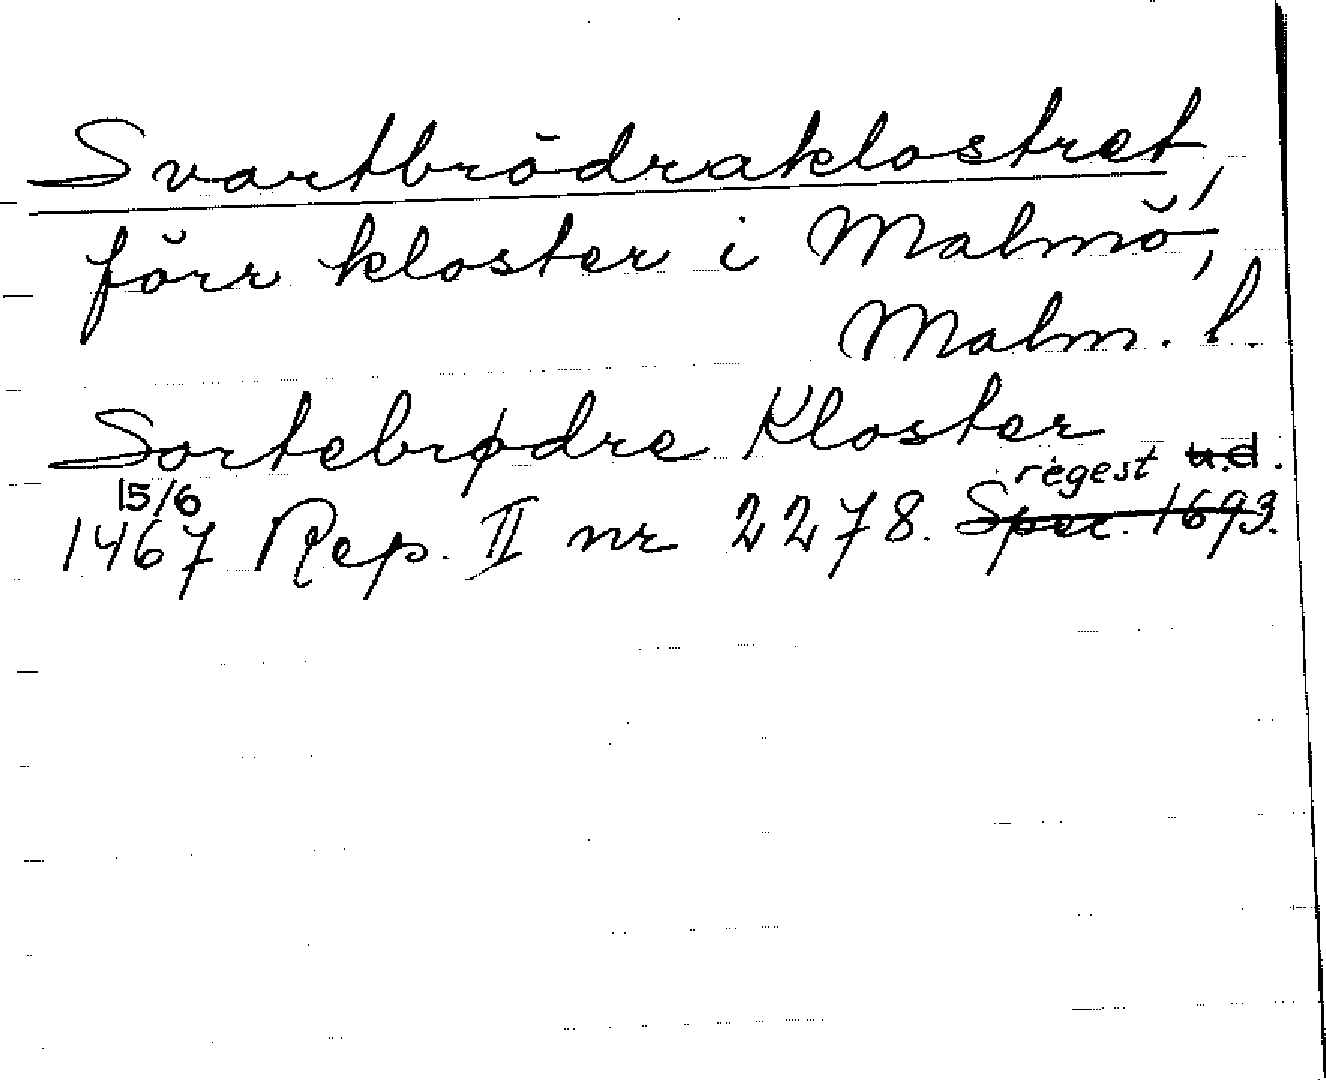 Svartbrödraklostret,
förr kloster i Malmö,
Malm. l.
Sortebrødre Kloster
15/6 regest u.d.
1467 Rep. II nr 2278. Spec. 1693.